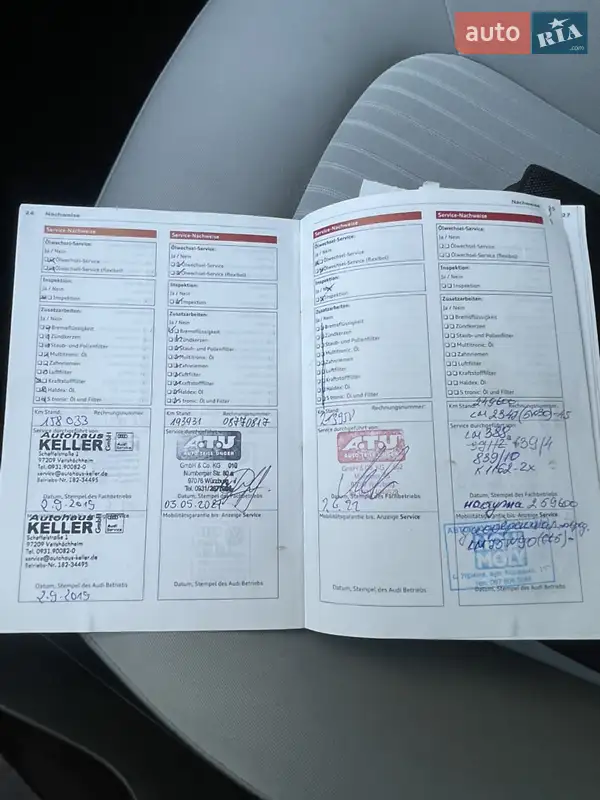 auto RIA
.com
24 Nachweise
Service-Nachweise
Ölwechsel-Service:
Ja / Nein
Ölwechsel-Service
Ölwechsel-Service (flexibel)
Inspektion:
Ja / Nein
Inspektion
Zusatzarbeiten:
Ja / Nein
Bremsflüssigkeit
Zündkerzen
Staub- und Pollenfilter
Multitronic: Öl
Zahnriemen
Luftfilter
Kraftstofffilter
Haldex: Öl
S tronic: Öl und Filter
Km Stand: Rechnungsnummer:
158 033
Service durchgeführt von:
Autohaus
KELLER GmbH
Audi
Service
Schaffelstraße 1
97209 Veitshöchheim
Tel. 0931.90082-0
service@autohaus-keller.de
Betriebs-Nr. 182-34495
Datum, Stempel des Fachbetriebs
2.9.2019
Autohaus
KELLER GmbH
Audi
Service
Schaffelstraße 1
97209 Veitshöchheim
Tel. 0931.90082-0
service@autohaus-keller.de
Betriebs-Nr. 182-34495
Datum, Stempel des Audi Betriebs
2.9.2019
Service-Nachweise
Ölwechsel-Service:
Ja / Nein
Ölwechsel-Service
Ölwechsel-Service (flexibel)
Inspektion:
Ja / Nein
Inspektion
Zusatzarbeiten:
Ja / Nein
Bremsflüssigkeit
Zündkerzen
Staub- und Pollenfilter
Multitronic: Öl
Zahnriemen
Luftfilter
Kraftstofffilter
Haldex: Öl
S tronic: Öl und Filter
Km Stand: Rechnungsnummer:
193931
Service durchgeführt von:
A.T.U
AUTO TEILE UNGER
GmbH & Co. KG
Nürnberger Str.
97076 Würzburg
Tel. 0931/
Datum, Stempel des Fachbetriebs
03.05.2021
Mobilitätsgarantie bis: Anzeige Service
Datum, Stempel des Audi Betriebs
Nachweise
Service-Nachweise
Ölwechsel-Service:
Ja / Nein
Ölwechsel-Service
Ölwechsel-Service (flexibel)
Inspektion:
Ja / Nein
Inspektion
Zusatzarbeiten:
Ja / Nein
Bremsflüssigkeit
Zündkerzen
Staub- und Pollenfilter
Multitronic: Öl
Zahnriemen
Luftfilter
Kraftstofffilter
Haldex: Öl
S tronic: Öl und Filter
Km Stand: Rechnungsnummer:
Service durchgeführt von:
A.T.U
AUTO TEILE UNGER
Datum, Stempel des Fachbetriebs
2.6.22
Mobilitätsgarantie bis: Anzeige Service
Datum, Stempel des Audi Betriebs
27
Service-Nachweise
Ölwechsel-Service:
Ja / Nein
Ölwechsel-Service
Ölwechsel-Service (flexibel)
Inspektion:
Ja / Nein
Inspektion
Zusatzarbeiten:
Ja / Nein
Bremsflüssigkeit
Zündkerzen
Staub- und Pollenfilter
Multitronic: Öl
Zahnriemen
Luftfilter
Kraftstofffilter
Haldex: Öl
S tronic: Öl und Filter
Km Stand:
Service durchgeführt von:
839/10
K 1162-2x
Datum, Stempel des Fachbetriebs
наступна 259600
Mobilitätsgarantie bis: Anzeige Service
MOLY
Datum, Stempel des Audi Betriebs